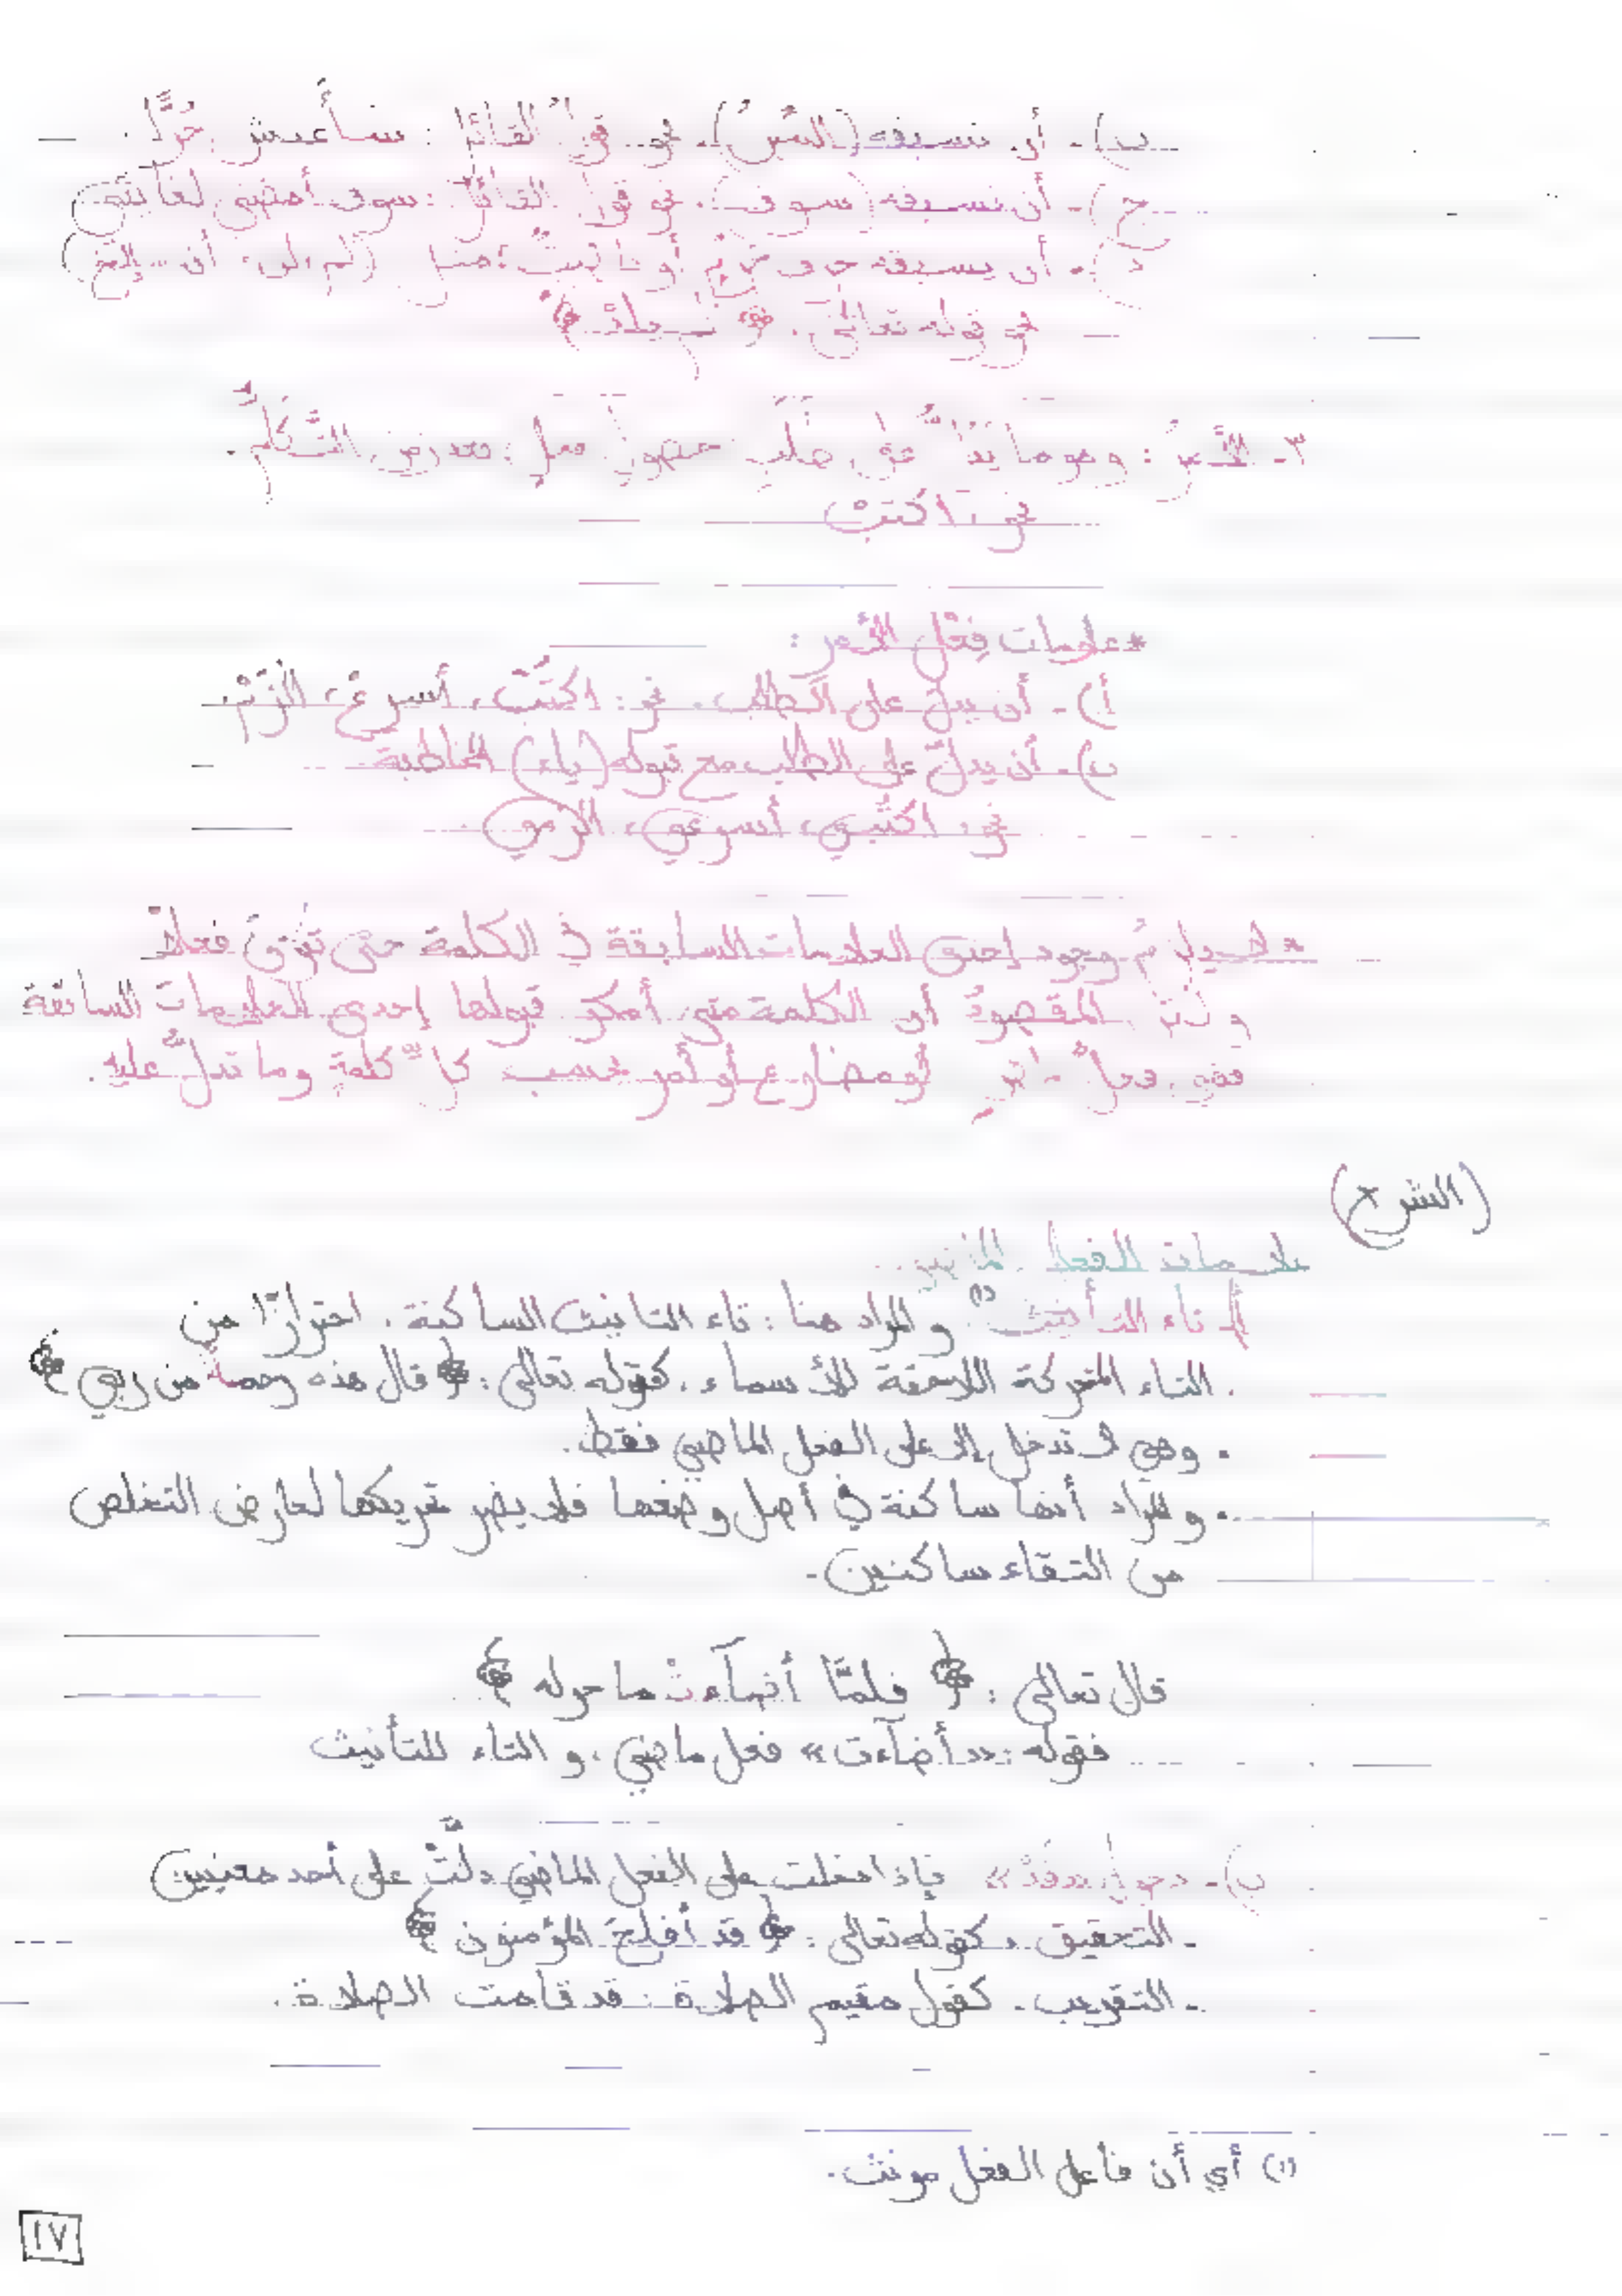 ب)- أن تسبقه (السين). نحو قول القائل: سأعيش حُرًّا.
ج)- أن تسبقه (سوف). نحو قول القائل: سوف أمضي لغايتي
د)- أن يسبقه حرف جزم أو ناصبٌ؛ مثل (لم، لن، أن.. إلخ)
نحو قوله تعالى. ﴿لم يلد﴾
٣- الأمر: وهو ما يدلّ على طلب حصول فعل بعد زمن التَّكلُّم.
نحو: اكتبْ
*علامات فِعْل الأمر:
أ)- أن يدلّ على الطلب. نحو: اكتُبْ، أسرعْ، الْزَمْ.
ب)- أن يدلّ على الطلب مع قبوله (ياء) المخاطبة
نحو: اكتُبي، أسرعي، الزمي
* لا يلزمُ وجود إحدى العلامات السابقة في الكلمة حتى تسمّى فعلًا
المقصودُ أن الكلمة متى أمكن قبولها إحدى العلامات السابقة
فهي فعلٌ ماضٍ أو مضارع أو أمر بحسب كلّ كلمةٍ وما تدلّ عليه.
(الشرح)
علامات الفعل الماضي..
أ- تاء التأنيث (١) والمراد هنا: تاء التأنيث الساكنة. احترازًا من
التاء المتحركة اللاحقة للأسماء. كقوله تعالى: ﴿قال هذه رحمةٌ من ربي﴾
• وهي لا تدخل إلا على الفعل الماضي فقط.
• والمراد أنها ساكنة في أصل وضعها فلا يضر تحريكها لعارض التخلص
من التقاء ساكنين.
قال تعالى: ﴿فلمَّا أضآءتْ ما حوله﴾
فقوله: «أضآءت» فعل ماضي، و التاء للتأنيث
ب)- دخول «قَدْ» فإذا دخلت على الفعل الماضي دلَّتْ على أحد معنيين
- التحقيق. كقوله تعالى: ﴿قد أفلحَ المؤمنون﴾
- التقريب. كقول مقيم الصلاة: قد قامت الصلاة.
(١) أي أن فاعل الفعل مونث.
١٧